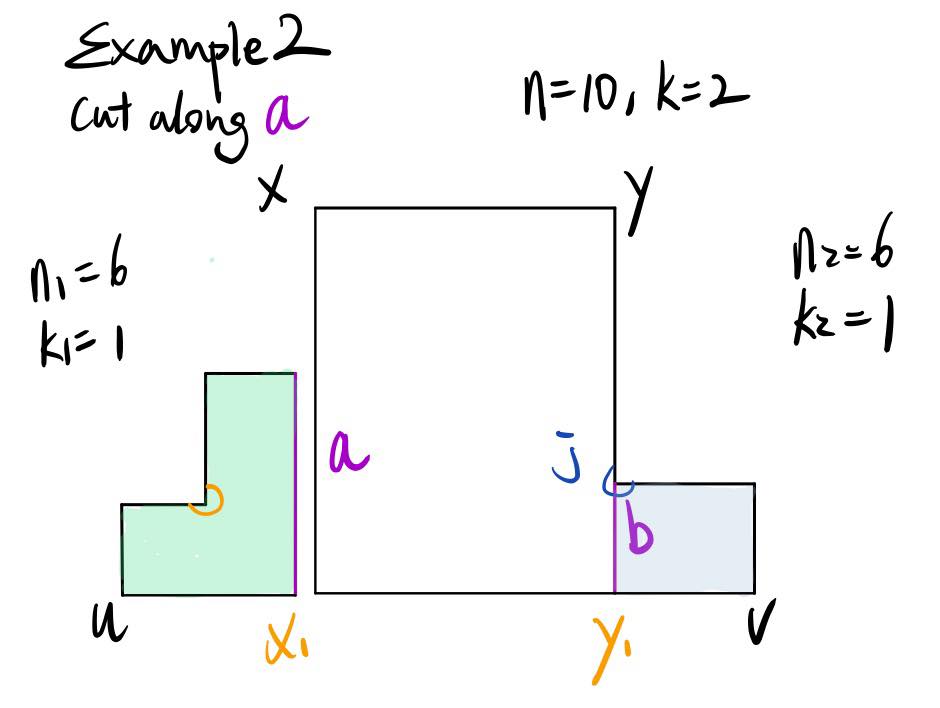 Example 2
cut along a
n=10, k=2
x
y
n1=6
k1=1
n2=6
k2=1
a
j
b
u
x1
y1
v